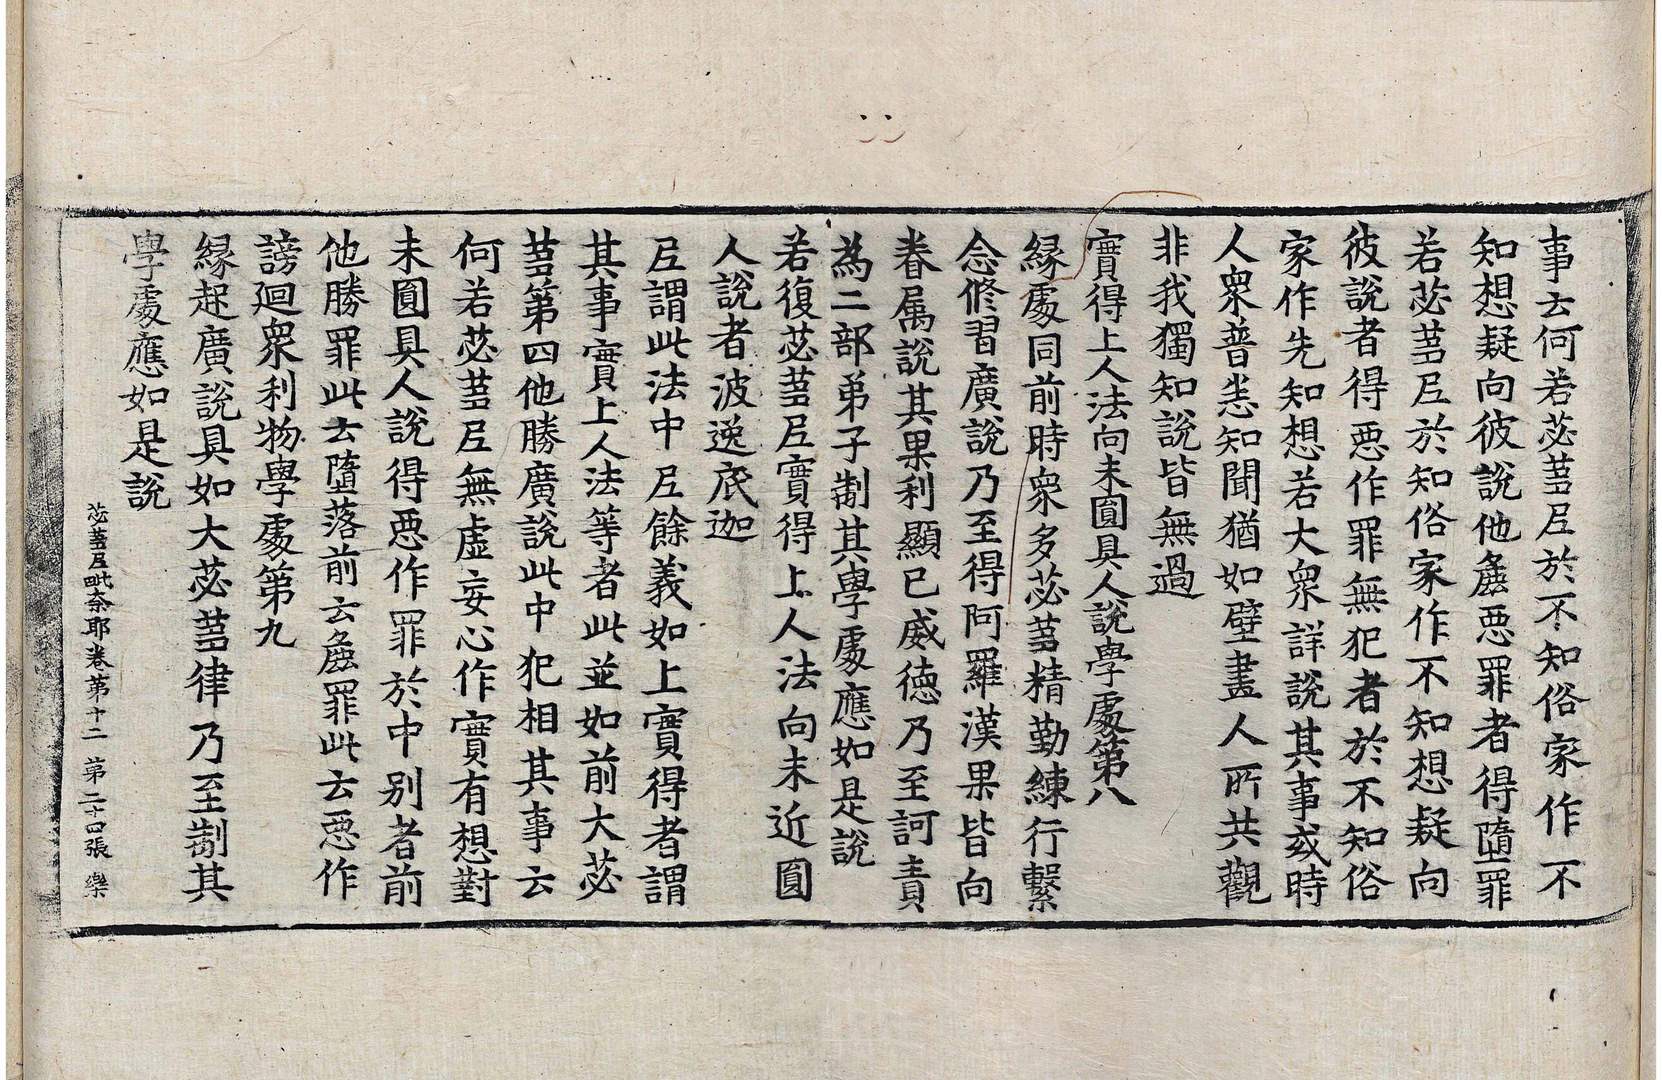 事云何若苾芻尼於不知俗家作不
知想疑向彼說他麁惡罪者得墮罪
若苾芻尼於知俗家作不知想疑向
彼說者得惡作罪無犯者於不知俗
家作先知想若大衆詳說其事或時
人衆普悉知聞猶如壁畫人所共觀
非我獨知說皆無過
實得上人法向未圓具人說學處第八
緣處同前時衆多苾芻精勤練行繫
念修習廣說乃至得阿羅漢果皆向
眷属說其果利顯已威德乃至訶責
為二部弟子制其學處應如是說
若復苾芻尼實得上人法向未近圓
人說者波逸底迦
尼謂此法中尼餘義如上實得者謂
其事實上人法等者此並如前大苾
芻第四他勝廣說此中犯相其事云
何若苾芻尼無虛妄心作實有想對
未圓具人說得惡作罪於中別者前
他勝罪此云墮落前云麁罪此云惡作
謗迴衆利物學處第九
緣起廣說具如大苾芻律乃至制其
學處應如是說
苾芻尼毗奈耶卷第十二 第二十四張 樂